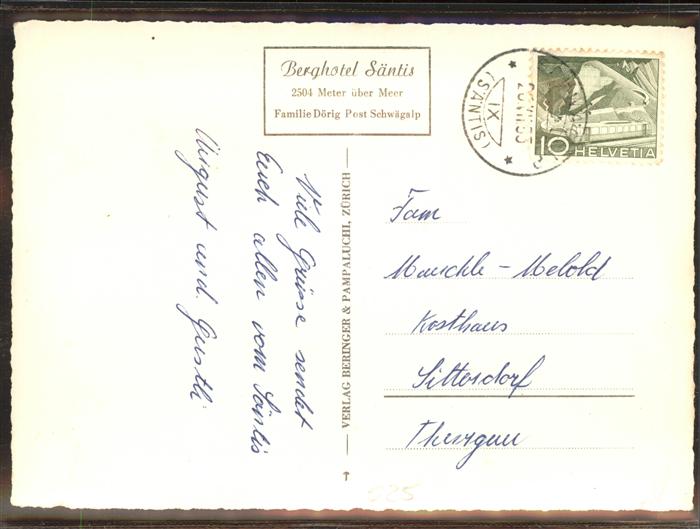 Berghotel Säntis
2504 Meter über Meer
Familie Dörig Post Schwägalp
(SÄNTIS)
IX
10 HELVETIA
Viele Grüsse sendet
Euch allen vom Säntis
August und Gustli
VERLAG BERINGER & PAMPALUCHI, ZÜRICH
Fam
Mauchle - Melold
Kosthaus
Sitterdorf
Thurgau
025